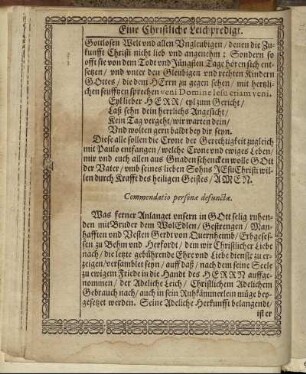 Eine Christliche Leichpredigt.
Gottlosen Welt und allen Vngleubigen / denen die Zu-
kunfft Christi nicht lieb und angenehm: Sondern so
offt sie von dem Todt und Jüngsten Tage hören sich ent-
setzen / und unter den Gleubigen und rechten Kindern
Gottes / die dem HErrn zu gegen sehen / mit hertzli-
chen seufftzen sprechen veni Domine Iesu etiam veni.
Eyl lieber HERR / eyl zum Gericht /
Laß sehn dein herrlichs Angesicht /
Kein Tag vergeht / wir warten dein /
Vnd wolten gern bald bey dir seyn.
Diese alle sollen die Crone der Gerechtigkeit zugleich
mit Paulo entfangen / welche Crone und ewiges Leben /
mir und euch allen aus Gnaden schencken wolle GOtt
der Vater / umb seines lieben Sohns JEsu Christi wil-
len durch Krafft des heiligen Geistes / AMEN.
Commendatio personæ defunctæ.
Was ferner Anlanget unsern in GOtt selig ruhen-
den mit Bruder dem WolEdlen / Gestrengen / Man-
hafften und Vesten Gerdt von Quernheimb / Erbgesesse-
sen zu Behm und Herfordt / dem wir Christlicher Liebe
nach / die letzte gebührende Ehre und Liebe dienste zu er-
zeigen / versamblet seyn / auff daß / nach dem seine Seele
zu ewigem Friede in die Handt des HERRN auffge-
nommen / der Adeliche Leich / Christlichem Adelichem
Gebrauch nach / auch in sein Ruhkämmerlein müge bey-
gesetzet werden. Seine Adeliche Herkunfft belangendt /
ist er